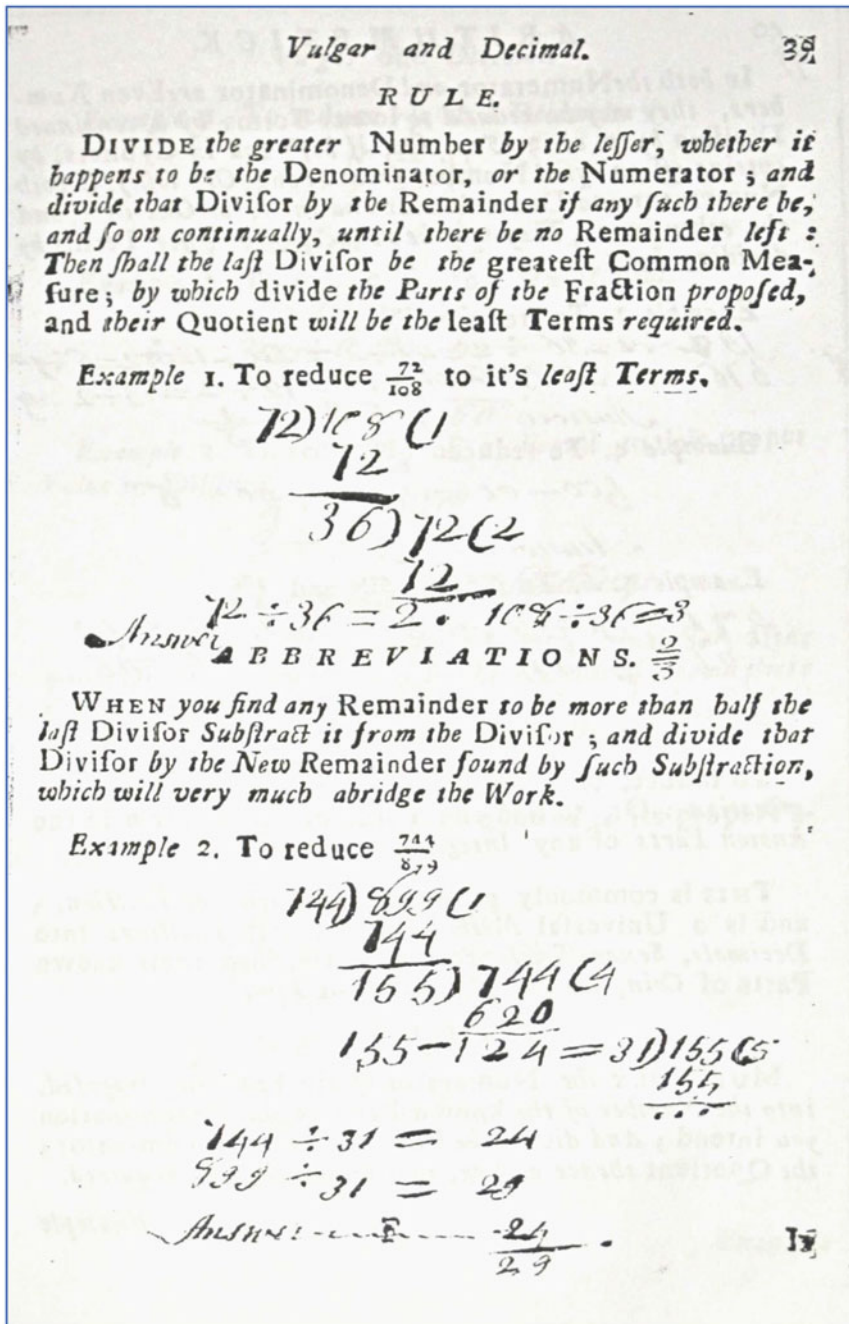 Vulgar and Decimal. 39
RULE.
DIVIDE the greater Number by the leſſer, whether it
happens to be the Denominator, or the Numerator; and
divide that Diviſor by the Remainder if any ſuch there be,
and ſo on continually, until there be no Remainder left:
Then ſhall the laſt Diviſor be the greateſt Common Mea-
ſure; by which divide the Parts of the Fraction propoſed,
and their Quotient will be the leaſt Terms required.
Example 1. To reduce 72/108 to it's leaſt Terms.
72)108(1
72
36)72(2
72
72÷36=2. 108÷36=3
Answer 2/3
ABBREVIATIONS.
WHEN you find any Remainder to be more than half the
laſt Diviſor Subſtract it from the Diviſor; and divide that
Diviſor by the New Remainder found by ſuch Subſtraction,
which will very much abridge the Work.
Example 2. To reduce 744/899
744)899(1
744
155)744(4
620
155-124=31)155(5
155
...
744÷31=24
899÷31=29
Answer 24/29.
F